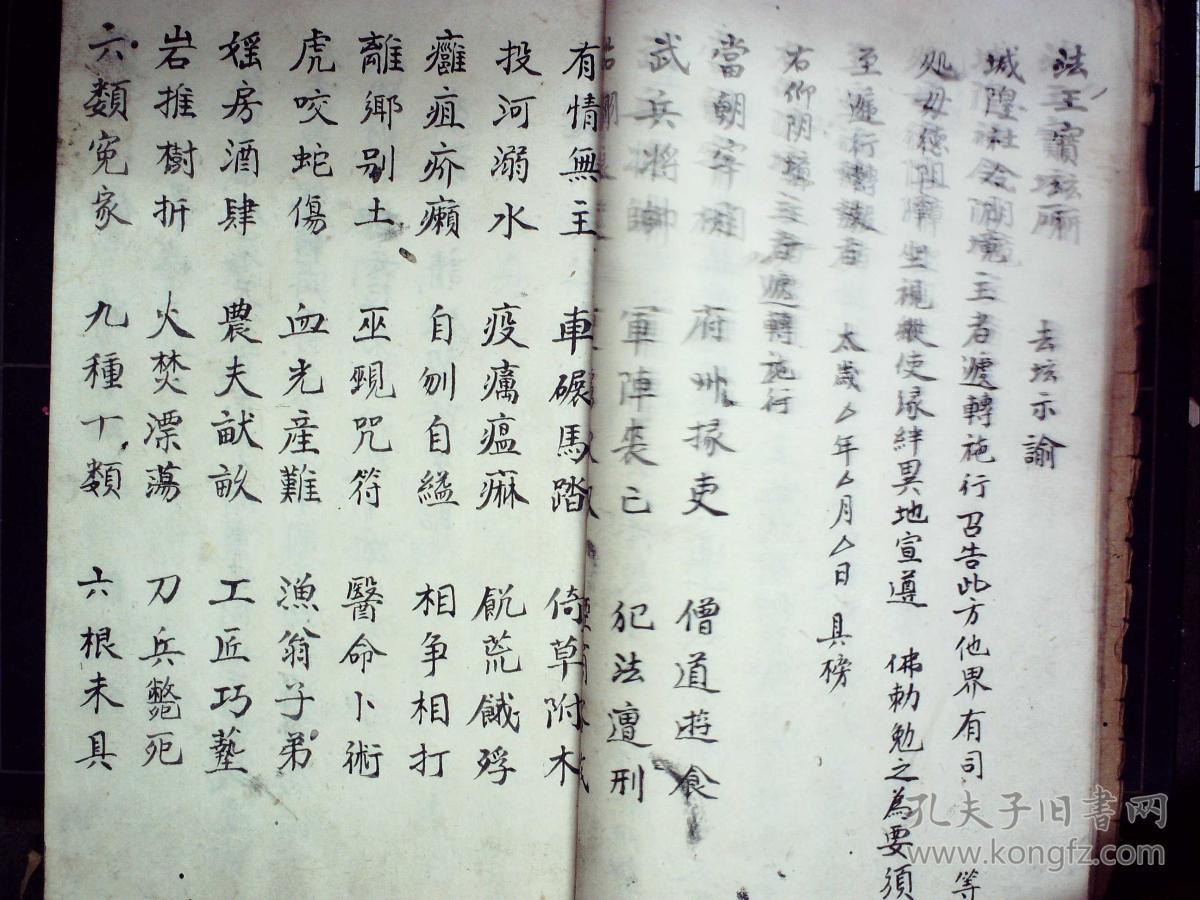 法王寶坛厛 去坛示諭
城隍社令 境主者遞轉施行召告此方他界有司 等
処毋德阻障坐視縱使缘絆異地宣遵 佛勅勉之為要須
至遞行轉 者 太歲厶年厶月厶日 具榜
右仰阴境主者遞轉施行
當朝宰相 府州掾吏 僧道遊食
武兵將帥 軍陣丧己 犯法遭刑
有情無主 車碾馬踏 倚草附木
投河溺水 疫癘瘟痳 飢荒餓殍
癰疽疥癩 自刎自縊 相争相打
離鄉别土 巫覡咒符 醫命卜術
虎咬蛇傷 血光産難 漁翁子弟
婬房酒肆 農夫畎畝 工匠巧藝
岩推樹折 火焚漂蕩 刀兵斃死
六類寃家 九種十類 六根未具
孔夫子旧书网
www.kongfz.com